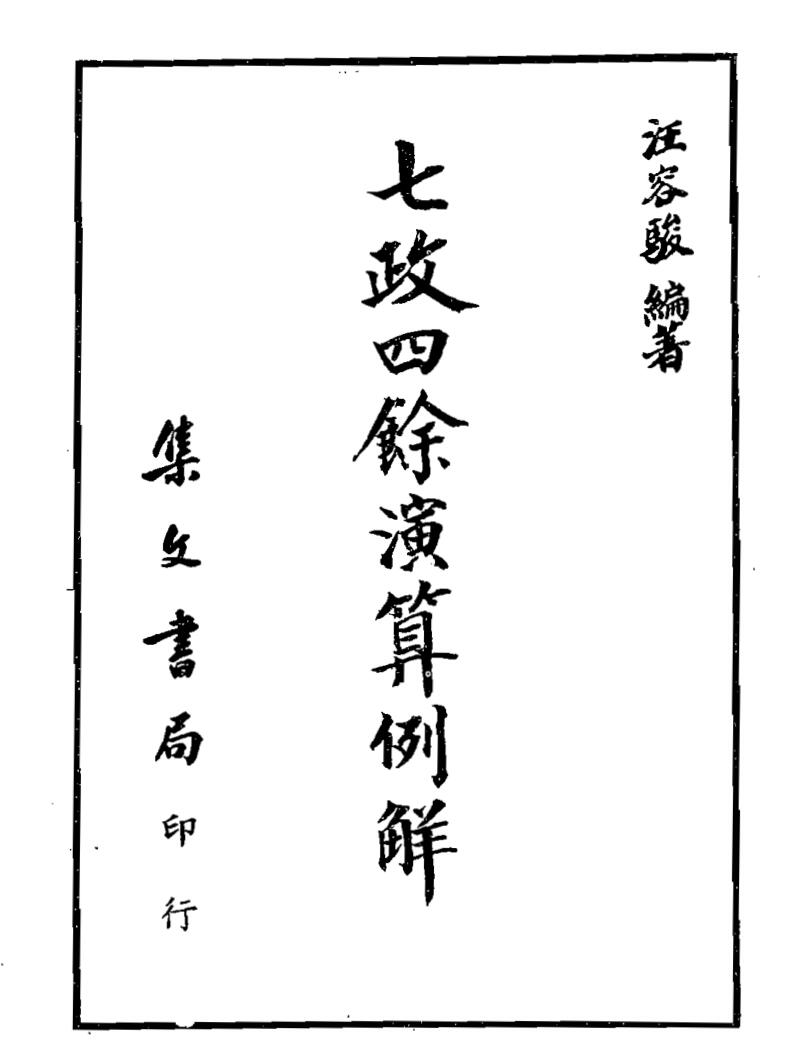 汪容駿 編著
七政四餘演算例觧
集文書局印行